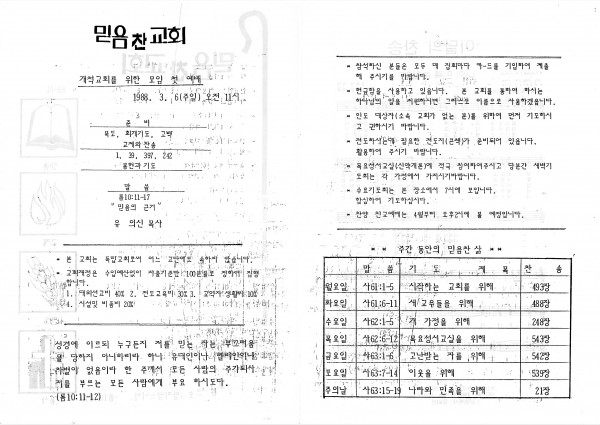 믿음 찬 교회
개척교회를 위한 모임 첫 예배
1988. 3. 6(주일) 오전 11시
준 비
묵도, 회개기도, 고백
교제와 찬송
1, 39, 397, 242
봉헌과 기도
말 씀
롬10:11-17
"믿음의 근거"
유 의신 목사
- 본 교회는 독립교회로서 어느 교단에도 속하지 않습니다.
- 교회재정은 수입예산없이 사용기준만 100분율로 정하여 집행
합니다.
1. 대외선교비 40% 2. 전도교육비 30% 3. 교역자 생활비 10%
4. 시설및 비품비 20%
성경에 이르되 누구든지 저를 믿는 자는 부끄러움
을 당하지 아니하리라 하니 유대인이나 헬라인이나
차별이 없음이라 한 주께서 모든 사람의 주가되사
저를 부르는 모든 사람에게 부요 하시도다.
(롬10:11-12)
- 참석하신 분들은 모두 매 집회마다 카-드를 기입하여 제출
해 주시기를 바랍니다.
- 헌금함을 사용하고 있습니다. 본 교회를 통하여 하나님의
- 인도 대상자(소속 교회가 없는 분)를 위하여 먼저 기도하시
고 권하시기 바랍니다.
- 전도하시는데 필요한 전도지(근색)가 준비되어 있습니다.
활용하여 주시기 바랍니다.
- 목요성서교실(신학개론)에 적극 참여하여주시고 당분간 새벽기
도회는 각 가정에서 가지시기바랍니다.
- 수요기도회는 본 장소에서 7시에 모입니다.
합심하여 기도하십시다.
- 찬양 친교예배는 4월부터 오후2시에 볼 예정입니다.
** 주간 동안의 믿음찬 삶 **
말 씀 기 도 제 목 찬 송
월요일 사61:1-5 시작하는 교회를 위해 493장
화요일 사61:6-11 새 교우들을 위해 488장
수요일 사62:1-5 제 가정을 위해 248장
목요일 사62:6-12 목요성서교실을 위해 543장
금요일 사63:1-6 고난받는 자를 위해 542장
토요일 사63:7-14 이웃을 위해 539장
주의날 사63:15-19 나라와 민족을 위해 21장